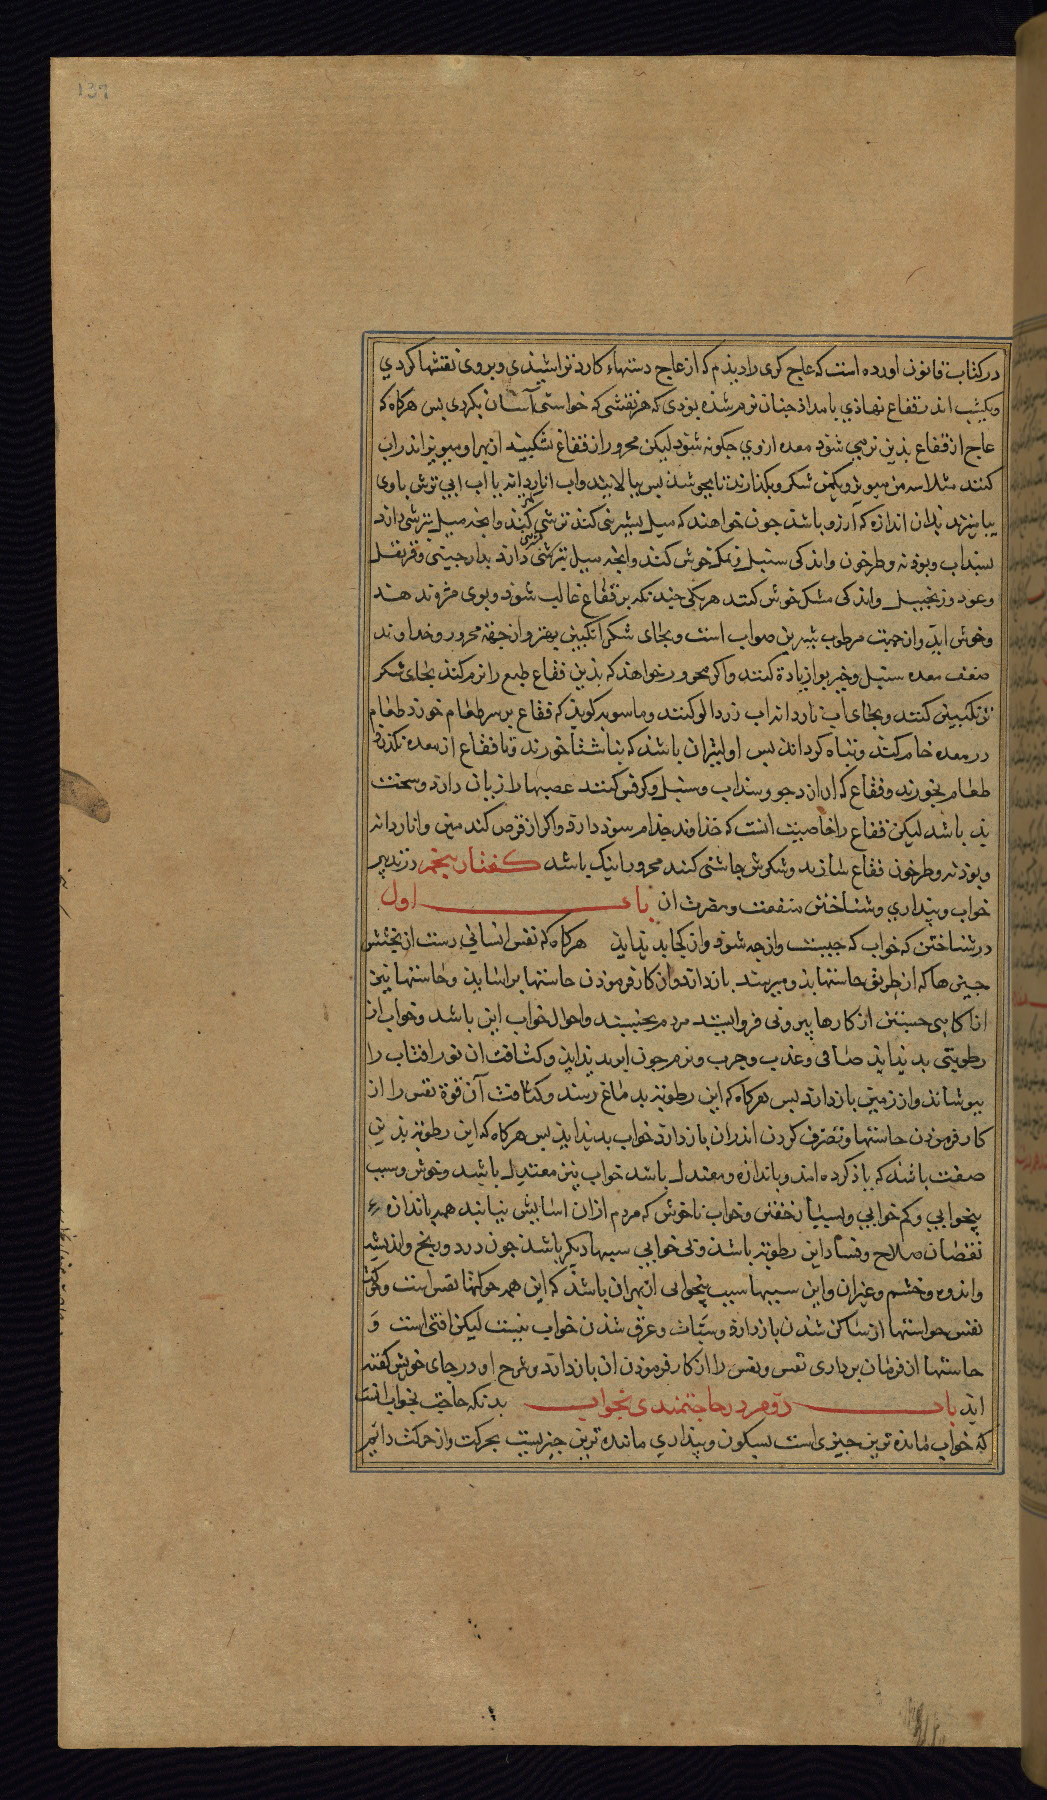 137
در کتاب قانون اورده است که عاج کری را دیدم که از عاج دستهاء کارد تراشیدی و بر وی نقشها کردی
و یکشب اندر فقاع نهاذی بامداذ جنان نرم شذه بوذی که هر نقشی که خواستی آسان بکردی بس هرکاه که
عاج از فقاع بذین نرمی شوذ معده از وی جکونه شوذ لیکن محرور از فقاع نشکیبد از بهر او میویز اندر اب
کنند مثلا سه من میویز و یکمن شکر و بکذارند تا بجوشد بس ببالایند و اب انار دانه یا اب ابی ترش با وی
بیامیزند بدان اندازه که آرزو باشد جون خواهند که میل بشیرینی کند ترشی کمتر کنند و انجه میل بترشی دارد
بسنداب و بوذنه و طرخون و اندکی سنبل و نمک خوش کنند و انجه میل بترشی دارد بدارجینی و قرنفل
و عود و زنجبیل و اندکی مشک خوش کنند هر یکی جندانکه بر فقاع غالب شوذ و بوی مزه ند هند
و خوش اید و از جهت مرطوب شیرین صواب است و بجای شکر انکبین بهتر و از جهة محرور و خداوند
ضعف معده سنبل و خیربوا زیادة کنند و اکر محرور خواهذ که بذین فقاع طبع را نرم کند بجای شکر
ترنکبین کنند و بجای اب ناردانه اب زردالو کنند و ماسویه کویذ که فقاع بر سر طعام خورد طعام
در معده خام کند و تباه کرداند بس اولیتران باشد که بناشتا خورند و تا فقاع از معده نکذرد
طعام نخورند و فقاع که از ارد جو و سنداب و سنبل و کرفس کنند عصبها را زیان دارد و سخت
بد باشد لیکن فقاع را خاصیت انست که خذاوند جذام سوذ دارد و اکر از قرص کندمین و اناردانه
و بوذنه و طرخون فقاع سازند و شکرش جاشنی کنند محرور را نیک باشد کفتار پنجم در تدبیر
خواب و بیداری و شناختن منفعت و مضرت ان باب اول
در شناختن که خواب که جیست و از جه شوذ و از کجا بدیداید هرکاه که نفس انسانی دست از بخشش
جیزها که از طریق حاستها بذو میرسد بازدارد و از کار فرموذن حاستها براساید و حاستها نیز
از اکاهی جستن از کارها بیرونی فرو ایستد مردم بخسبد و احوال خواب این باشد و خواب از
رطوبتی بدید اید صافی و عذب و جرب و نرم جون ابر بدید اید و کثافت ان نور افتاب را
ببوشاند و از زمین بازدارد بس هرکاه که این رطوبت بدماغ رسد و کثافت آن قوة نفس را از
کار فرموذن حاستها و تصرف کردن اندران بازدارد خواب بدید اید بس هرکاه که این رطوبت بذین
صفت باشد که یاذ کرده امد و باندازه و معتدل باشد خواب نیز معتدل باشد و خوش و سبب
بیخوابی و کم خوابی و بسیار خفتن و خواب ناخوش که مردم از ان اسایش نیابند هم باندازه
نقصان صلاح و فساد این رطوبت باشذ و بی خوابی سببها دیکر باشذ جون درد و رنج و اندیشه
و اندوه و خشم و غیران و این سببها سبب بیخوابی از بهر ان باشذ که این همه حرکتها نفس است و حرکت
نفس حواستها از ساکن شدن بازدارد و سبات و غرق شدن خواب نیست لیکن افتی است و
حاستها از فرمان برداری نفس و نفس را از کار فرموذن ان بازدارد و شرح او در جای خویش کفته
اید باب دوم در حاجتمندی بخواب بدانکه حاجت بخواب انست
که خواب ماننده ترین جیزی است بسکون و بیداری ماننده ترین جیزیست بحرکت و از حرکت دایم